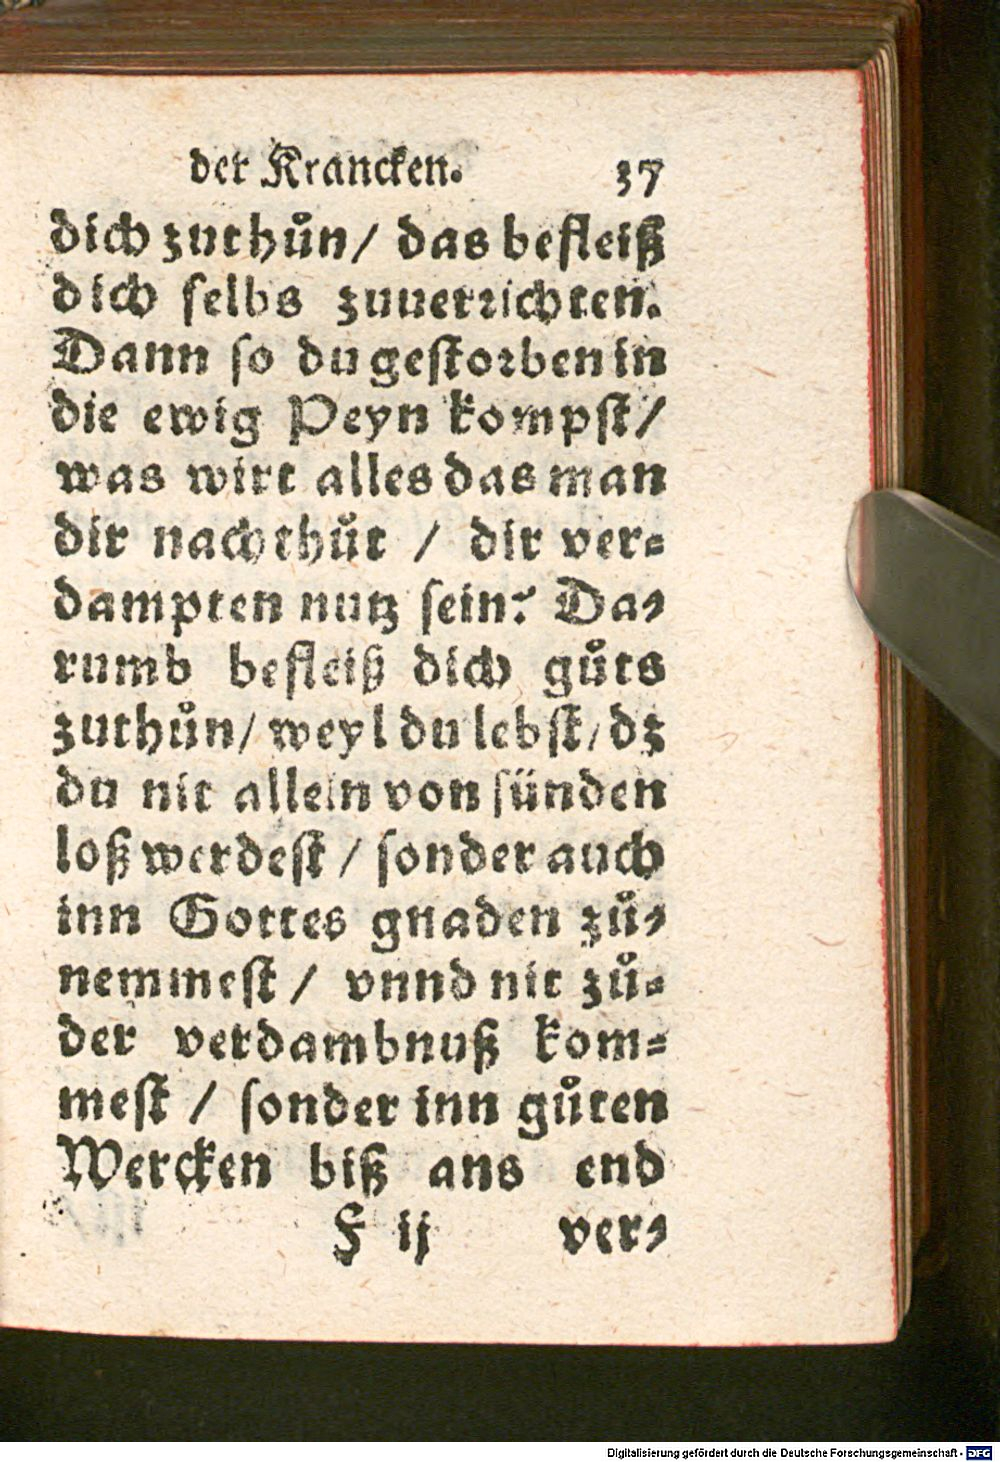 der Krancken. 37
dich zuthůn/ das befleiß
dich selbs zuuerrichten.
Dann so du gestorben in
die ewig Peyn kompst/
was wirt alles das man
dir nachthůt / dir ver-
dampten nutz sein? Da-
rumb befleiß dich gůts
zuthůn/ weyl du lebst/ dz
du nit allein von sünden
loß werdest / sonder auch
inn Gottes gnaden zů-
nemmest / vnnd nit zů-
der verdambnuß kom-
mest / sonder inn gůten
Wercken biß ans end
F ij ver-
Digitalisierung gefördert durch die Deutsche Forschungsgemeinschaft - DFG